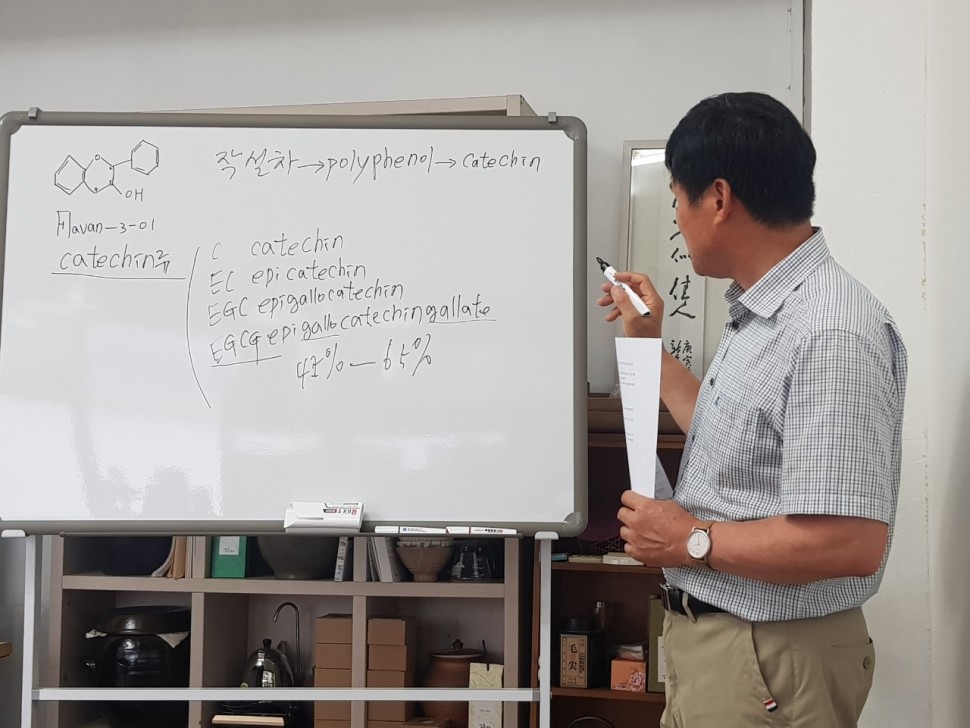 작설차→polyphenol→catechin
OH
Flavan-3-ol
catechin류
C catechin
EC epicatechin
EGC epigallocatechin
EGCG epigallocatechingallate
47%-65%
佳人
毛尖